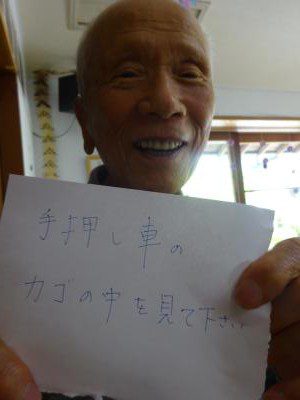 手押し車の
カゴの中を見て下さい